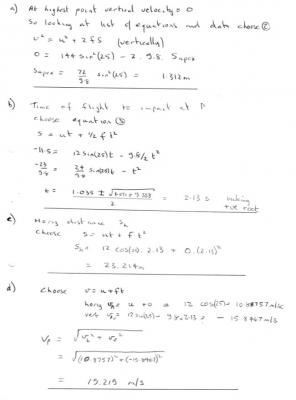 a) At highest point vertical velocity = 0
So looking at list of equations and data choose ②
v² = u² + 2fs (vertically)
0 = 144 sin²(25) - 2. 9.8. Sapex
Sapex = 72/9.8 sin²(25) = 1.312m
b) Time of flight to impact at P
choose equation ③
s = ut + ½ft²
-11.5 = 12sin(25)t - 9.8/2 t²
-23/9.8 = 24/9.8 sin(25)t - t²
t = 1.035 ± / 2 = 2.13 s taking +ve root
c) Horiz distance Sh
choose s = ut + ft²
Sh = 12 cos(25). 2.13 + 0.(2.13)²
= 23.214m
d) Choose v = u + ft
horiz vh = u + 0 = 12 cos(25) = 10.8757m/s
vert vv = 12sin(25) - 9.8x2.13 = -15.8467m/s
Vp = √vh² + vv²
= √(10.8757)² + (-15.8467)²
= 19.219 m/s